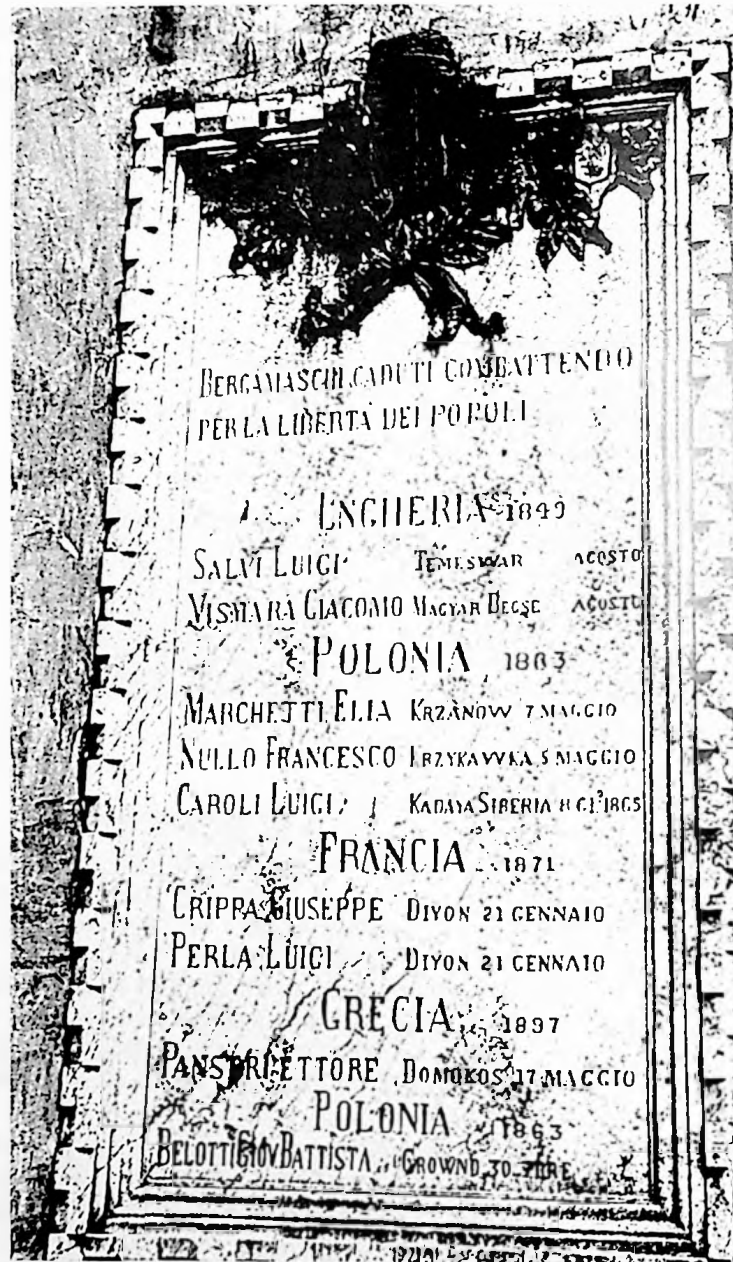 BERGAMASCHI CADUTI COMBATTENDO
PER LA LIBERTÀ DEI POPOLI
UNGHERIA 1849
SALVI LUIGI TEMESWAR AGOSTO
VISMARA GIACOMO MAGYAR BECSE AGOSTO
POLONIA 1863
MARCHETTI ELIA KRZANOW 7 MAGGIO
NULLO FRANCESCO KRZYKAWKA 5 MAGGIO
CAROLI LUIGI KADAYA SIBERIA 8 GI° 1865
FRANCIA 1871
CRIPPA GIUSEPPE DIYON 21 GENNAIO
PERLA LUIGI DIYON 21 GENNAIO
GRECIA 1897
PANSERI ETTORE DOMOKOS 17 MAGGIO
POLONIA 1863
BELOTTI GIOV BATTISTA GROWND 30